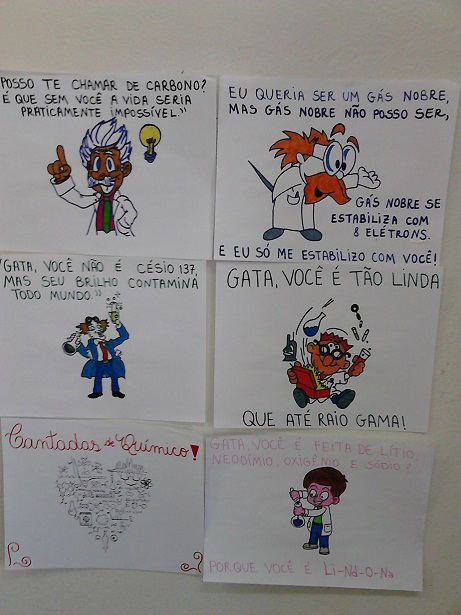 POSSO TE CHAMAR DE CARBONO?
É QUE SEM VOCÊ A VIDA SERIA
PRATICAMENTE IMPOSSÍVEL."
EU QUERIA SER UM GÁS NOBRE,
MAS GÁS NOBRE NÃO POSSO SER,
GÁS NOBRE SE
ESTABILIZA COM
8 ELÉTRONS.
E EU SÓ ME ESTABILIZO COM VOCÊ!
"GATA, VOCÊ NÃO É CÉSIO 137,
MAS SEU BRILHO CONTAMINA
TODO MUNDO."
GATA, VOCÊ É TÃO LINDA
QUE ATÉ RAIO GAMA!
Cantadas de Químico!
GATA, VOCÊ É FEITA DE LÍTIO,
NEODÍMIO, OXIGÊNIO E SÓDIO?
PORQUE VOCÊ É Li-Nd-O-Na